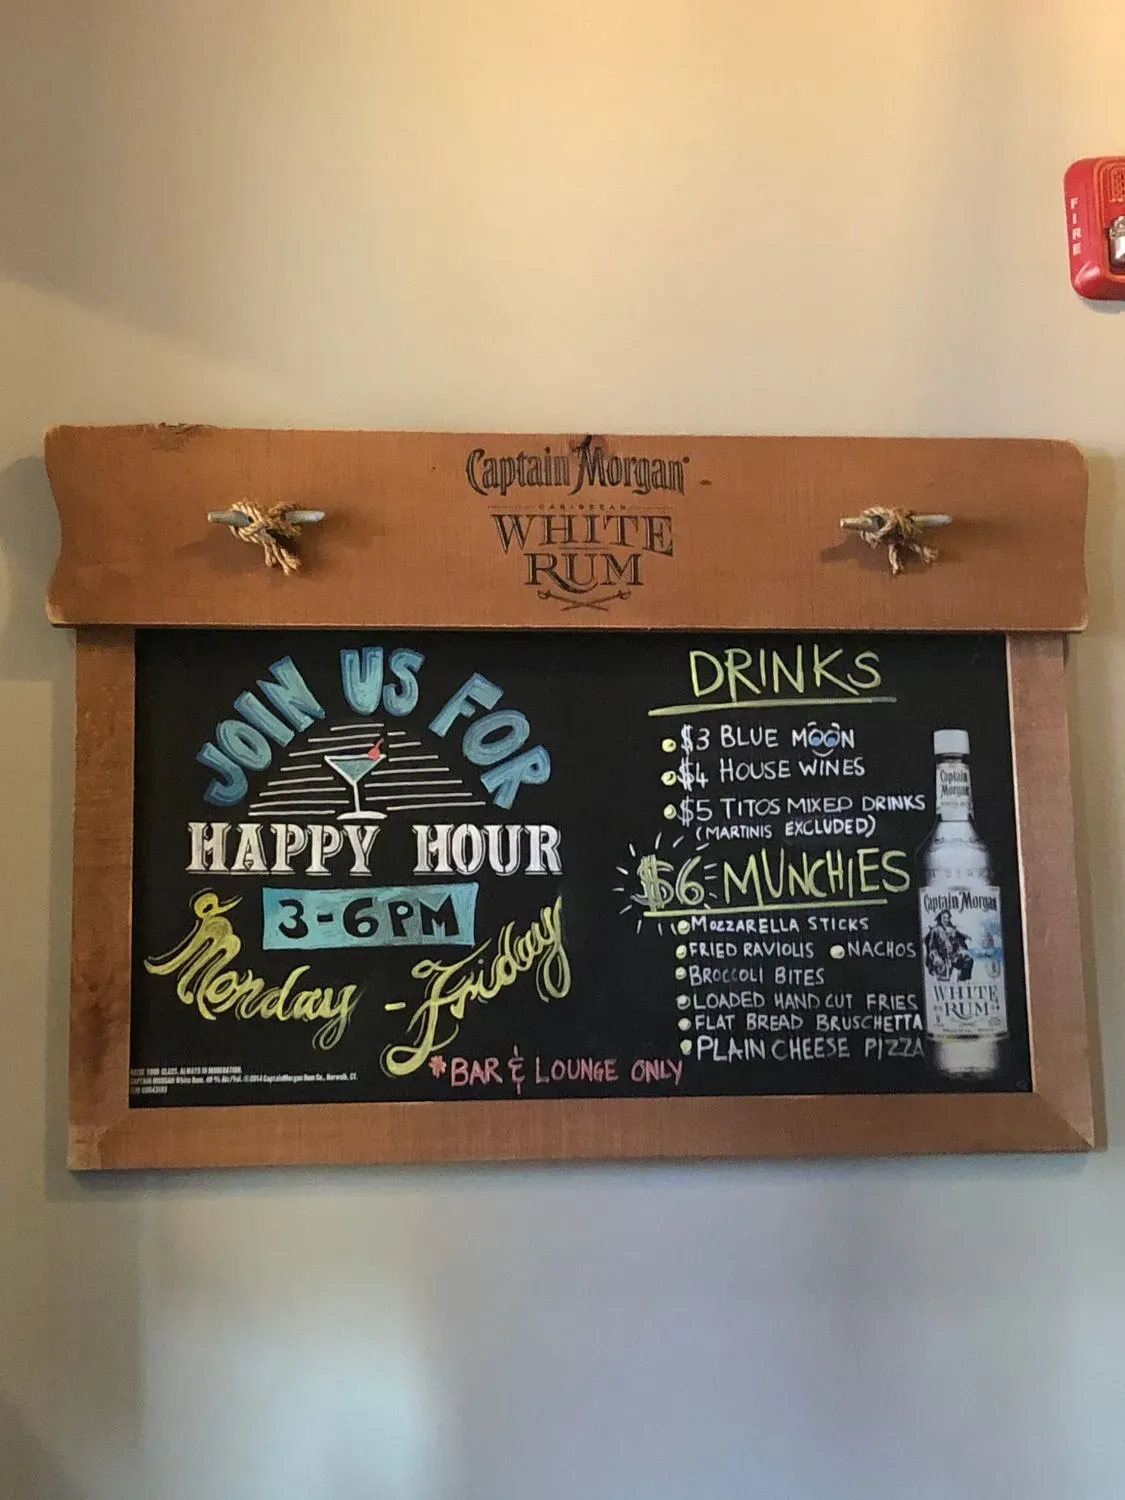 FIRE
Captain Morgan
CARIBBEAN
WHITE
RUM
JOIN US FOR
HAPPY HOUR
3-6PM
Monday - Friday
*BAR & LOUNGE ONLY
DRINKS
$3 BLUE MOON
$4 HOUSE WINES
$5 TITOS MIXED DRINKS
(MARTINIS EXCLUDED)
$6 MUNCHIES
MOZZARELLA STICKS
FRIED RAVIOLIS NACHOS
BROCCOLI BITES
LOADED HAND CUT FRIES
FLAT BREAD BRUSCHETTA
PLAIN CHEESE PIZZA
Captain
Morgan
Captain Morgan
WHITE
RUM
YOUR GLASS. ALWAYS IN MODERATION.
CAPTAIN MORGAN White Rum. 40 % Alc/Vol. ©2014 Captain Morgan Rum Co., Norwalk, CT.